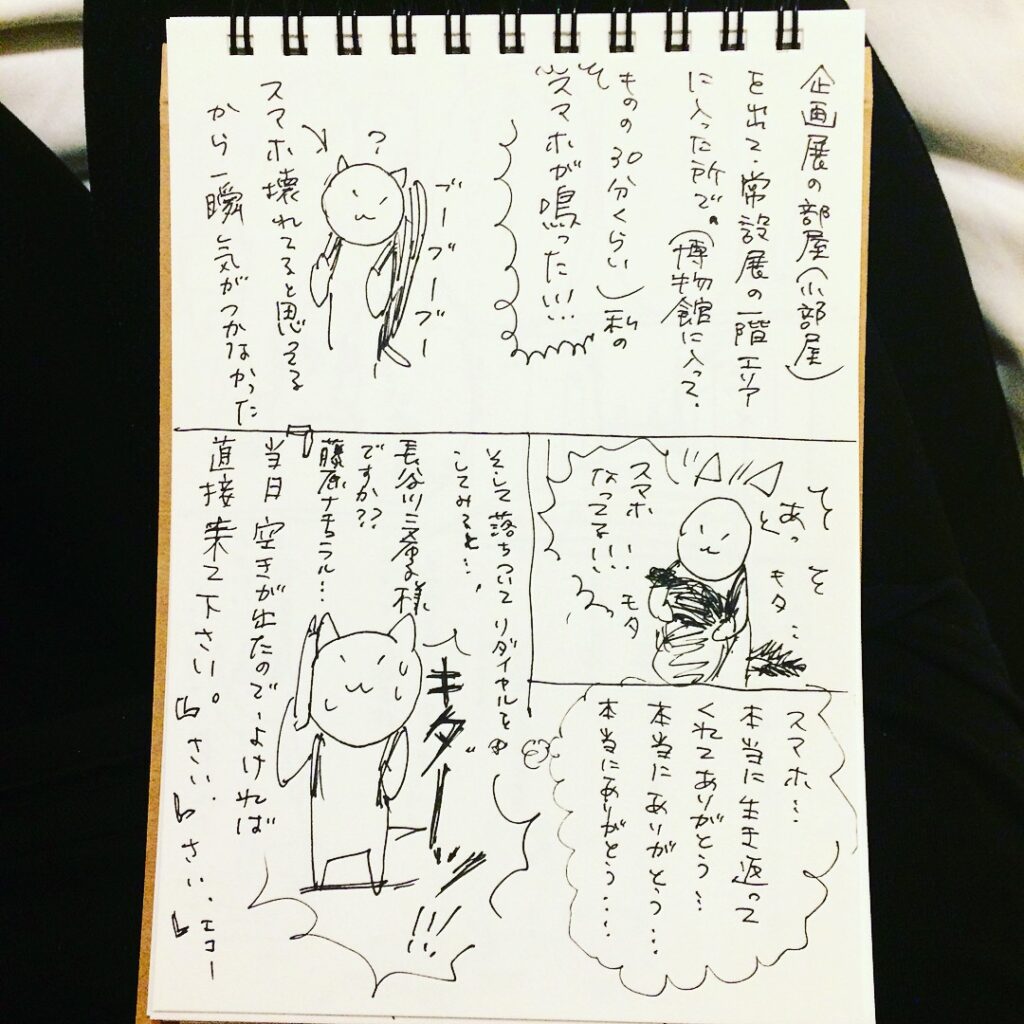 企画展の部屋(小部屋)
を出て、常設展の一階エリア
に入った所で。(博物館に入って、
ものの30分くらい)私の
スマホが鳴った!!!
?
ブーブーブーブー
スマホ壊れてると思ってる
から一瞬気がつかなかった
そ そ そ
あっ
と
モタ…
モタ
スマホ
なってる!!
スマホ…
本当に生き返って
くれてありがとう…
本当にありがとう…
本当にありがとう…
そして落ちついてリダイヤルを
してみると…
長谷川三席子様
ですか??
藤原ナチュラル…
当月空きが出たので、よければ
直接来て下さい。
さい、
さい、エコー
キターッ
!!!